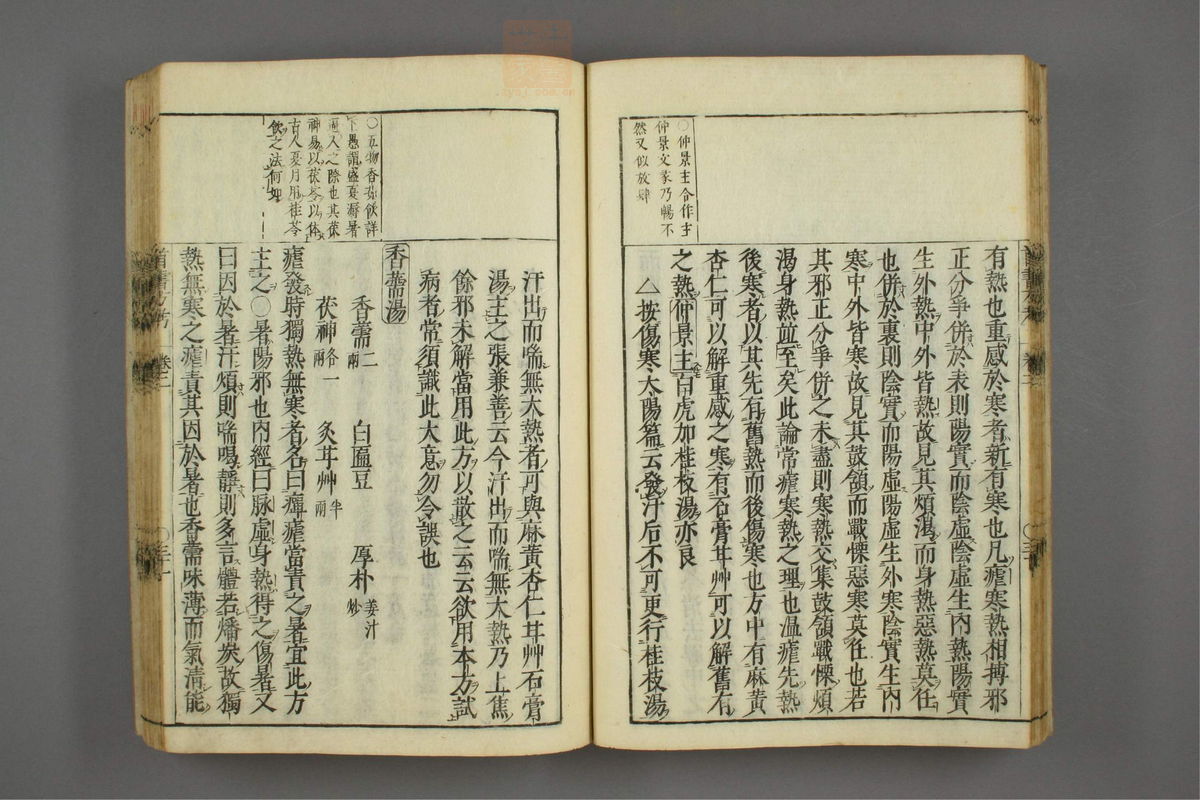 〇仲景主合作主
仲景文象乃暢不
然又似放肆
有熱也重感於寒者新有寒也凡瘧寒熱相搏邪
正分爭併於表則陽實而陰虛陰虛生內熱陽實
生外熱中外皆熱故見其煩渴而身熱惡熱莫任
也併於裏則陰實而陽虛陽虛生外寒陰實生內
寒中外皆寒故見其鼓頷而戰慄惡寒莫任也若
其邪正分爭併之未盡則寒熱交集鼓頷戰慄煩
渴身熱並至矣此論常瘧寒熱之理也溫瘧先熱
後寒者以其先有舊熱而後傷寒也方中有麻黃
杏仁可以解重感之寒有石膏甘艸可以解舊有
之熱仲景主白虎加桂枝湯亦良
△按傷寒太陽篇云發汗后不可更行桂枝湯
〇五物香薷飲詳
下愚謂盛夏溽暑
逼人之際也其茯
神易以茯苓以体
古人夏月用桂苓
飲之法何如
汗出而喘無大熱者可與麻黃杏仁甘艸石膏
湯主之張兼善云今汗出而喘無大熱乃上焦
餘邪未解當用此方以散之云云欲用本方試
病者常須識此大意勿令誤也
香薷湯
香薷二兩 白扁豆 厚朴姜汁炒
茯神各一兩 炙甘艸半兩
瘧發時獨熱無寒者名曰癉瘧當責之暑宜此方
主之〇暑陽邪也內經曰脉虛身熱得之傷暑又
曰因於暑汗煩則喘喝靜則多言體若燔炭故獨
熱無寒之瘧責其因於暑也香薷味薄而氣清能
卷二